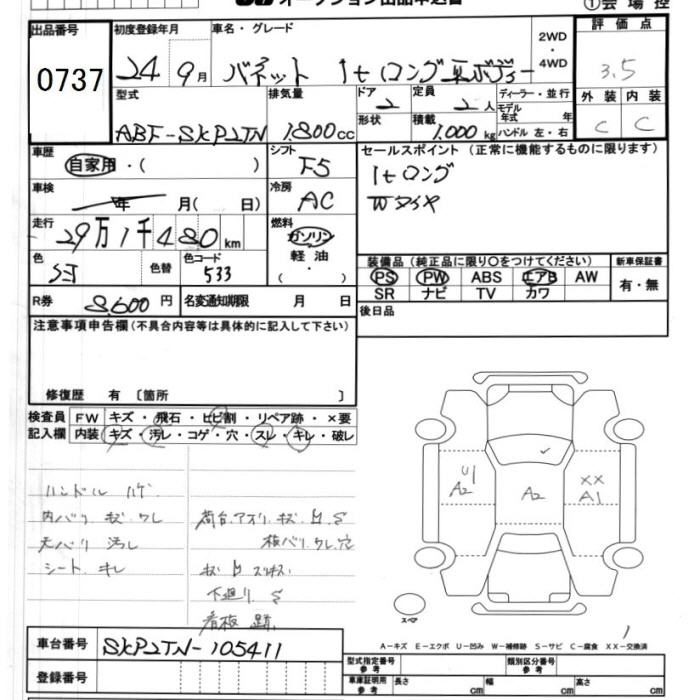 オークション出品申込書 ①会場控
出品番号 初度登録年月 車名・グレード 2WD・4WD 評価点
0737 24 9月 バネット 1tロング 3.5
型式 排気量 ドア 定員 ディーラー・並行 外装 内装
ABF-SKP2TN 1,800cc 2 2人 モデル年式 年 C C
形状 積載 1,000kg ハンドル 左・右
車歴 シフト セールスポイント (正常に機能するものに限ります)
自家用・( ) F5 1tロング
車検 冷房 Wタイヤ
年 月( 日) AC
走行 燃料
29万1千480km ガソリン
軽油
・
( )
色 色替 色コード 装備品 (純正品に限り○をつけてください) 新車保証書
533 PS PW ABS エアB AW 有・無
SR ナビ TV カワ
R券 8,600円 名変通知期限 月 日 後日品
注意事項申告欄(不具合内容等は具体的に記入して下さい)
修復歴 有 〔箇所 〕
検査員 FW キズ・飛石・ヒビ割・リペア跡・×要
記入欄 内装 キズ・汚レ・コゲ・穴・スレ・キレ・破レ
ハンドル ハゲ
内バリ キズ ワレ 荷台.アオリ キズ
天バリ 汚レ ワレ.穴
シート キレ キズ
下廻り S
看板 跡
U1 A2 A2 XX A1
スペア
1
A-キズ E-エクボ U-凹み W-補修跡 S-サビ C-腐食 XX-交換済
車台番号 SKP2TN-105411
登録番号
型式指定番号 参考 類別区分番号 参考
車庫証明用 参考 長さ cm 幅 cm 高さ cm